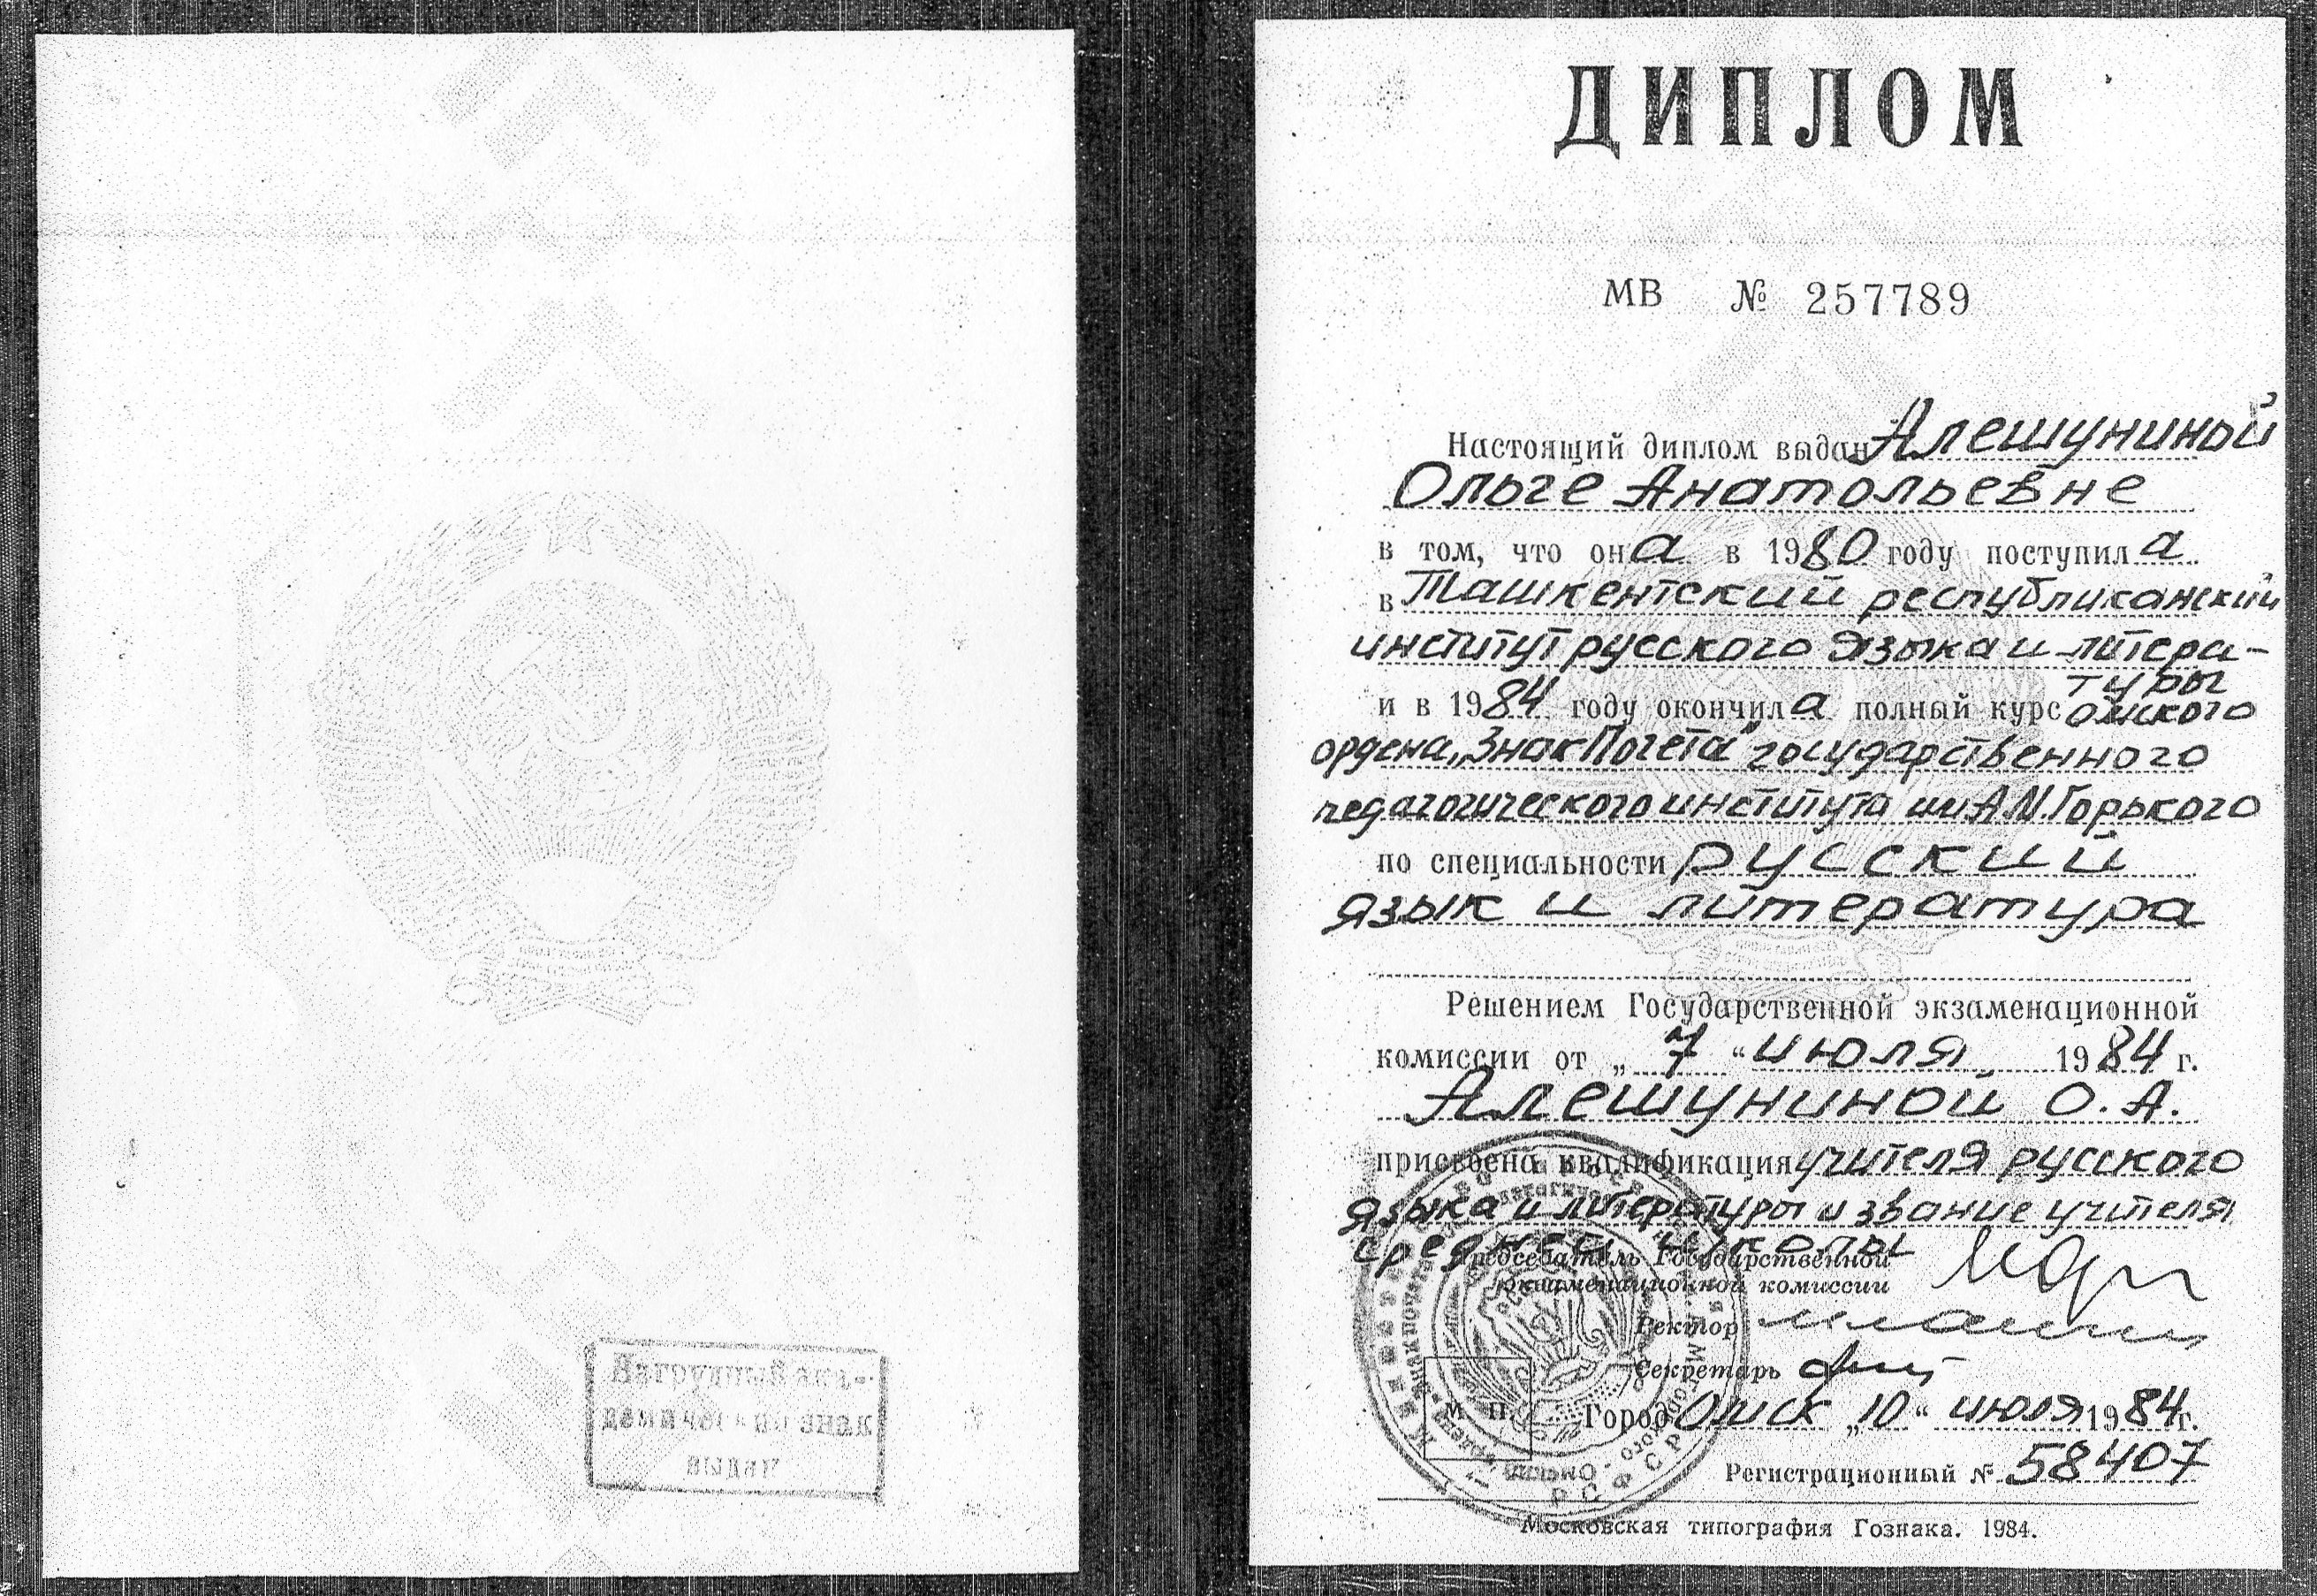 Нагрудный ака-
демический знак
выдан
ДИПЛОМ
МВ № 257789
Настоящий диплом выдан Алешуниной
Ольге Анатольевне
в том, что она в 1980 году поступила
в Ташкентский республиканский
институт русского языка и литера-
туры
и в 1984 году окончила полный курс Омского
ордена „Знак Почета" государственного
педагогического института им А.М.Горького
по специальности русский
язык и литература
Решением Государственной экзаменационной
комиссии от „7" июля 1984 г.
Алешуниной О.А.
присвоена квалификация учителя русского
языка и литературы и звание учителя
средней школы
Председатель Государственной
экзаменационной комиссии
Ректор
Секретарь
М. П. Город Омск „10" июля 1984 г.
Регистрационный № 58407
Московская типография Гознака. 1984.